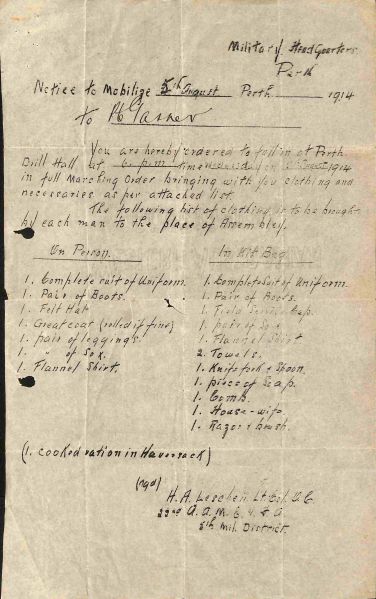 Military Head Quarters
Perth
Notice to Mobilize 5th August Perth 1914
to
You are hereby ordered to fall in at Perth
Drill Hall at 6. p.m. time 1914
in full Marching Order bringing with you clothing and
necessaries as per attached list.
The following list of clothing is to be brought
by each man to the place of Assembly.
On Person.
1. Complete suit of Uniform.
1. Pair of Boots.
1. Felt Hat
1. Great coat (rolled if fine)
1. pair of leggings.
1. " of Sox.
1. Flannel Shirt.
In Kit Bag.
1. Complete Suit of Uniform.
1. Pair of Boots.
1. Field Service Cap.
1. pair of Sox
1. Flannel Shirt
2. Towels.
1. Knife fork & Spoon.
1. piece of Soap.
1. Comb.
1. House-wife.
1. Razor & brush.
(1. cooked ration in Haversack)
(sgd)
H. A. Leschen Lt Col. O.C.
22nd A. A. M. C.
5th Mil. District.